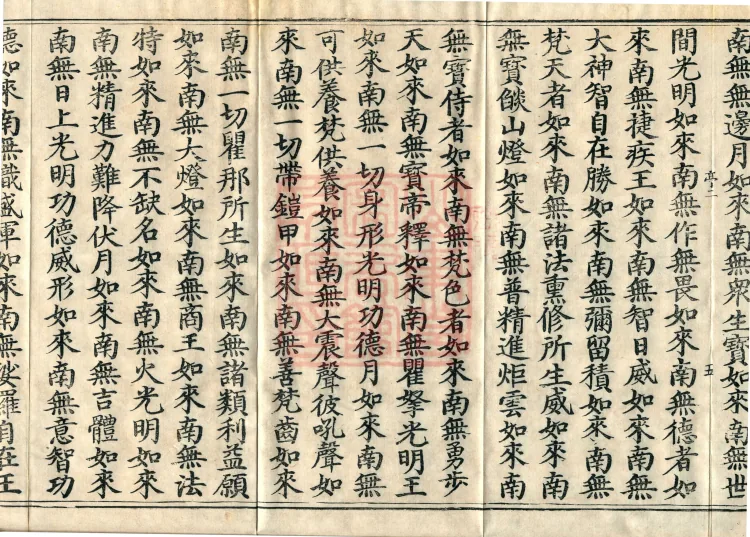 南無無邊月如來南無衆生寶如來南無世
間光明如來南無作無畏如來南無德者如
來南無捷疾王如來南無智日威如來南無
大神智自在勝如來南無彌留積如來南無
梵天者如來南無諸法熏修所生威如來南
無寶燄山燈如來南無普精進炬雲如來南
無寶侍者如來南無梵色者如來南無勇步
天如來南無寶帝釋如來南無瞿拏光明王
如來南無一切身形光明功德月如來南無
可供養梵供養如來南無大震聲彼吼聲如
來南無一切帶鎧甲如來南無善梵齒如來
南無一切瞿那所生如來南無諸類利益願
如來南無大燈如來南無商王如來南無法
特如來南無不缺名如來南無火光明如來
南無精進力難降伏月如來南無吉體如來
南無日上光明功德威形如來南無意智功
德如來南無幟盛軍如來南無娑羅自在王